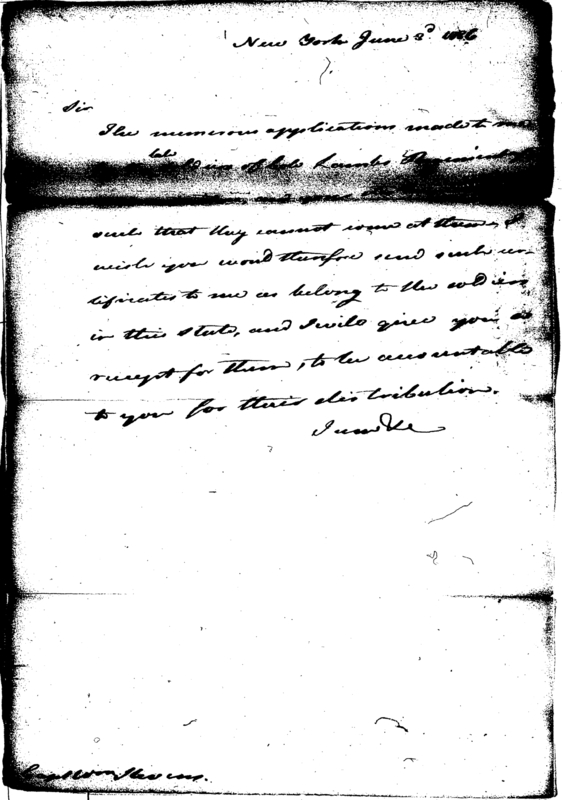 New York June 3d 1786
Sir
The numerous applications made to me
late
soldiers of Cols Lambs Regiment
such that they cannot come at them, I
wish you would therefore send such cer-
tificates to me as belong to the soldiers
in this State, and I will give you a
receipt for them, to be accountable
to you for their distribution.
I am &c
Capt Wm Stevens.